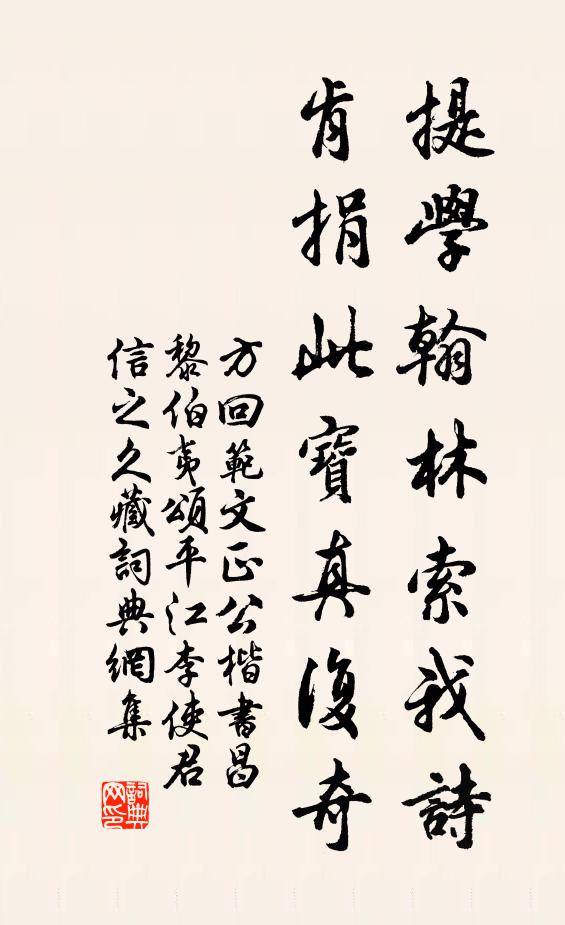 提學翰林索我詩
肯捐此寶真復奇
方回範文正公楷書昌
黎伯夷頌平江李使君
信之久藏詞典網集
詞典
网印